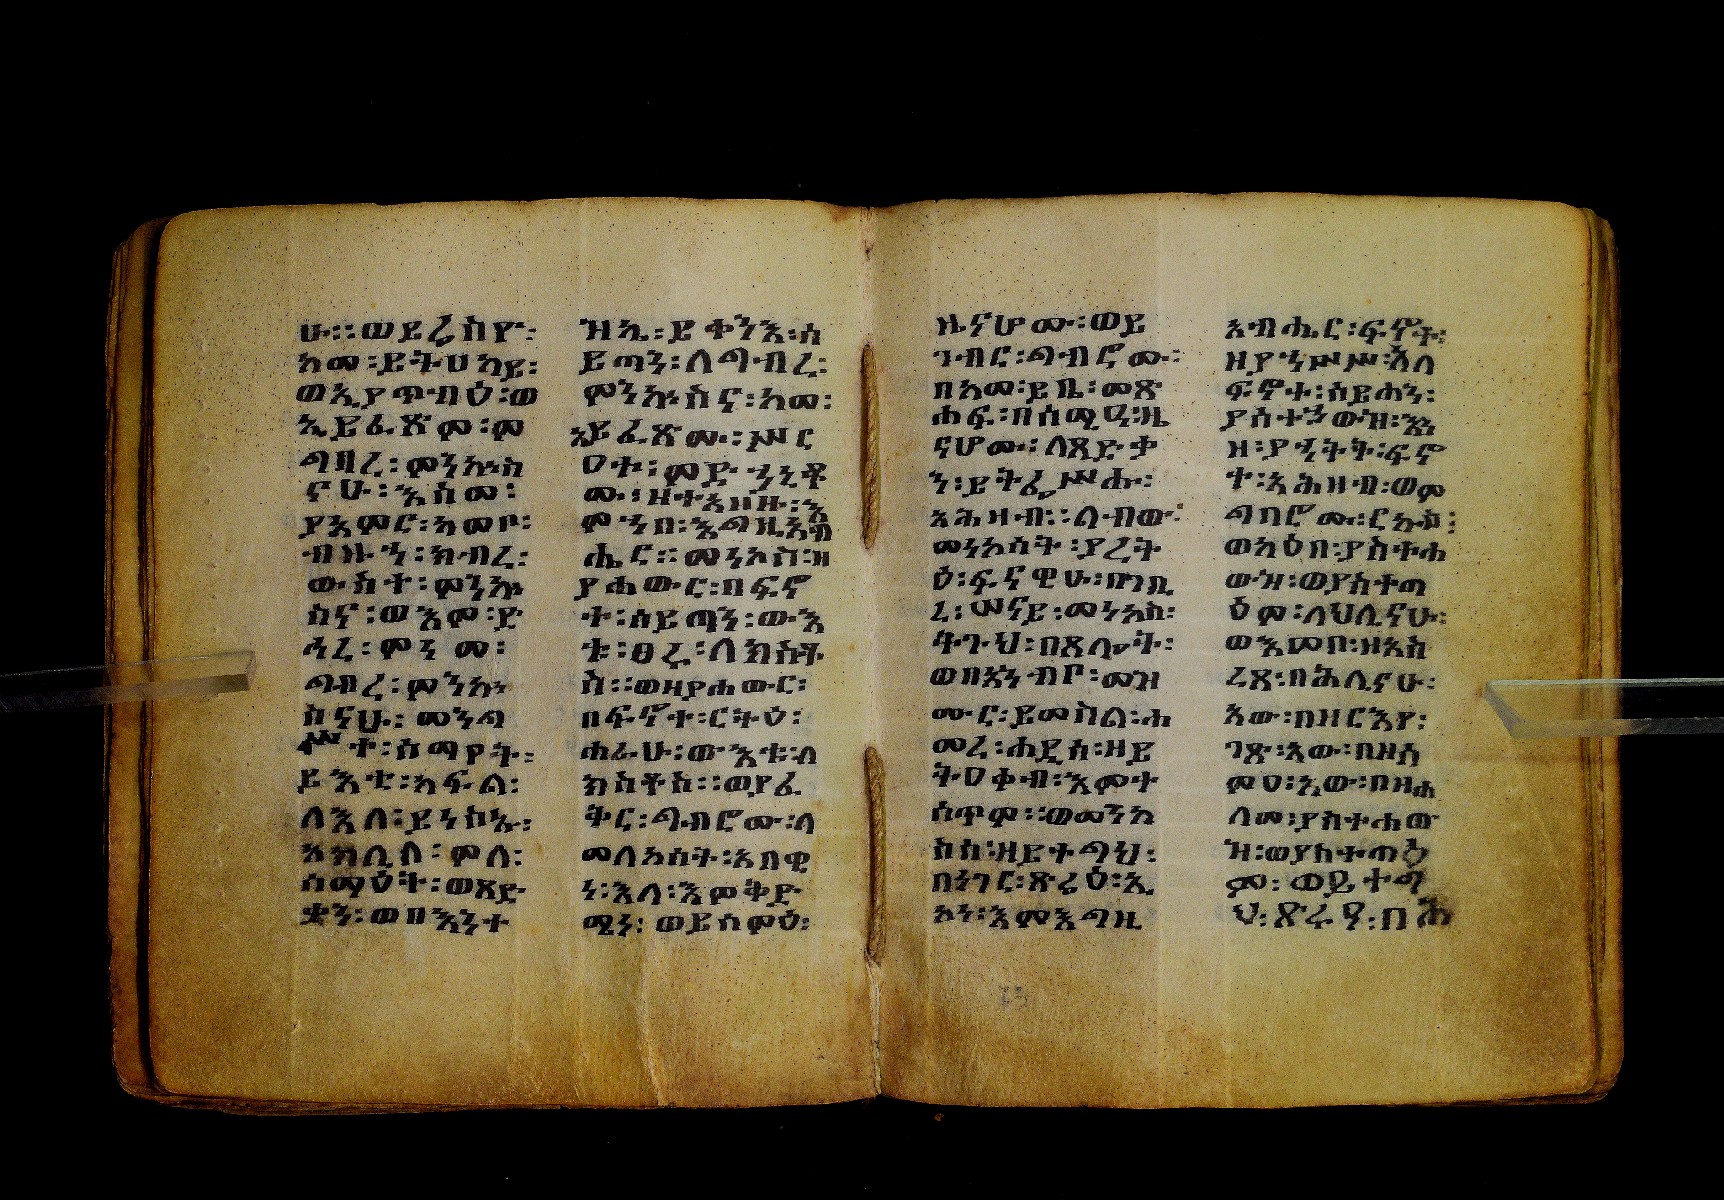 ሁ፡፡ወይሬስዮ፡
አመ፡ይትሀከይ፡
ወኢያጥብዕ፡ወ
ኢይፌጽም፡ም
ግብረ፡ምንኵስ
ናሁ፡እስመ፡
ያአምር፡ከመቦ፡
ብዙኀ፡ክብረ፡
ውስተ፡ምንኵ
ስና፡ወእም፡ድ
ኅረ፡ምን
ግብረ፡ምንኵ
ስናሁ፡መንግ
ሥተ፡ሰማያት፡
ይእቲ፡አፍል፡
ለእለ፡ይነስኡ፡
አክሊለ፡ምስ፡
ሰማዕት፡ወጻድ
ቃን፡ወበእንተ
ዝኒ፡ይቀንእ፡ሰ
ይጣን፡ለግብረ፡
ምንኵስና፡ከመ፡
ኢይፌጽሙ፡ሥር
ዐተ፡ምድ
ሙ፡ዘተአዘዙ፡እ
ምኀበ፡እግዚአብ
ሔር፡፡መነኮስ፡ዘ
ያሐውር፡በፍኖ
ተ፡ሰይጣን፡ውእ
ቱ፡ፀሩ፡ለክስት
ስ፡፡ወዘያሐውር፡
በፍኖተ፡ርትዕ፡
ሐራሁ፡ውእቱ፡ለ
ክስቶስ፡፡ወያፈ
ቅር፡ግብሮሙ፡ለ
መለኮስት፡አበዊ
ነ፡እለ፡እምቅድ
ሚነ፡ወይሰምዕ፡
ዜናሆሙ፡ወይ
ገብር፡ግብሮሙ፡
በአመ፡ይቤ፡መጽ
ሐፍ፡በሰሚዒ፡ዜ
ናሆሙ፡ለጻድቃ
ን፡ይትፌሥሑ፡
አሕዛብ፡፡ለብው፡
መነኮሳት፡ያረት
ዕ፡ፍናዊሁ፡በገቢ
ረ፡ሠናይ፡መነኮስ፡
ትጉህ፡በጸሎት፡
ወበአንብቦ፡መዝ
ሙር፡ይመስል፡ሐ
መረ፡ሐዲስ፡ዘይ
ትዐቀብ፡እምተ
ሰጥም፡፡ወመንኰ
ስስ፡ዘይተግህ፡
በነገር፡ጽሩዕ፡ኢ
ኮነ፡እምእግዚ
አብሔር፡ፍኖት፡
ዘያንሥሥ፡እለ
ፍኖተ፡ሰይጣን፡
ያስተኃውዝ፡እን
ዘ፡ያኀትት፡ፍኖ
ተ፡አሕዛብ፡ወም
ግባሮሙ፡ርኩስ፡
ወአዕበ፡ያስተሐ
ውዝ፡ወያስተጣ
ዕም፡ለህሊናሁ፡
ወእመቦ፡ዘአስ
ረጸ፡በሕሊናሁ፡
አው፡በዘርእየ፡
ገጽ፡አው፡በዘሰ
ምዐ፡አው፡በዘሐ
ለመ፡ያስተሐው
ዝ፡ወያስተጣዕ
ም፡ወይተግ
ህ፡ጽሩዓ፡በሕ